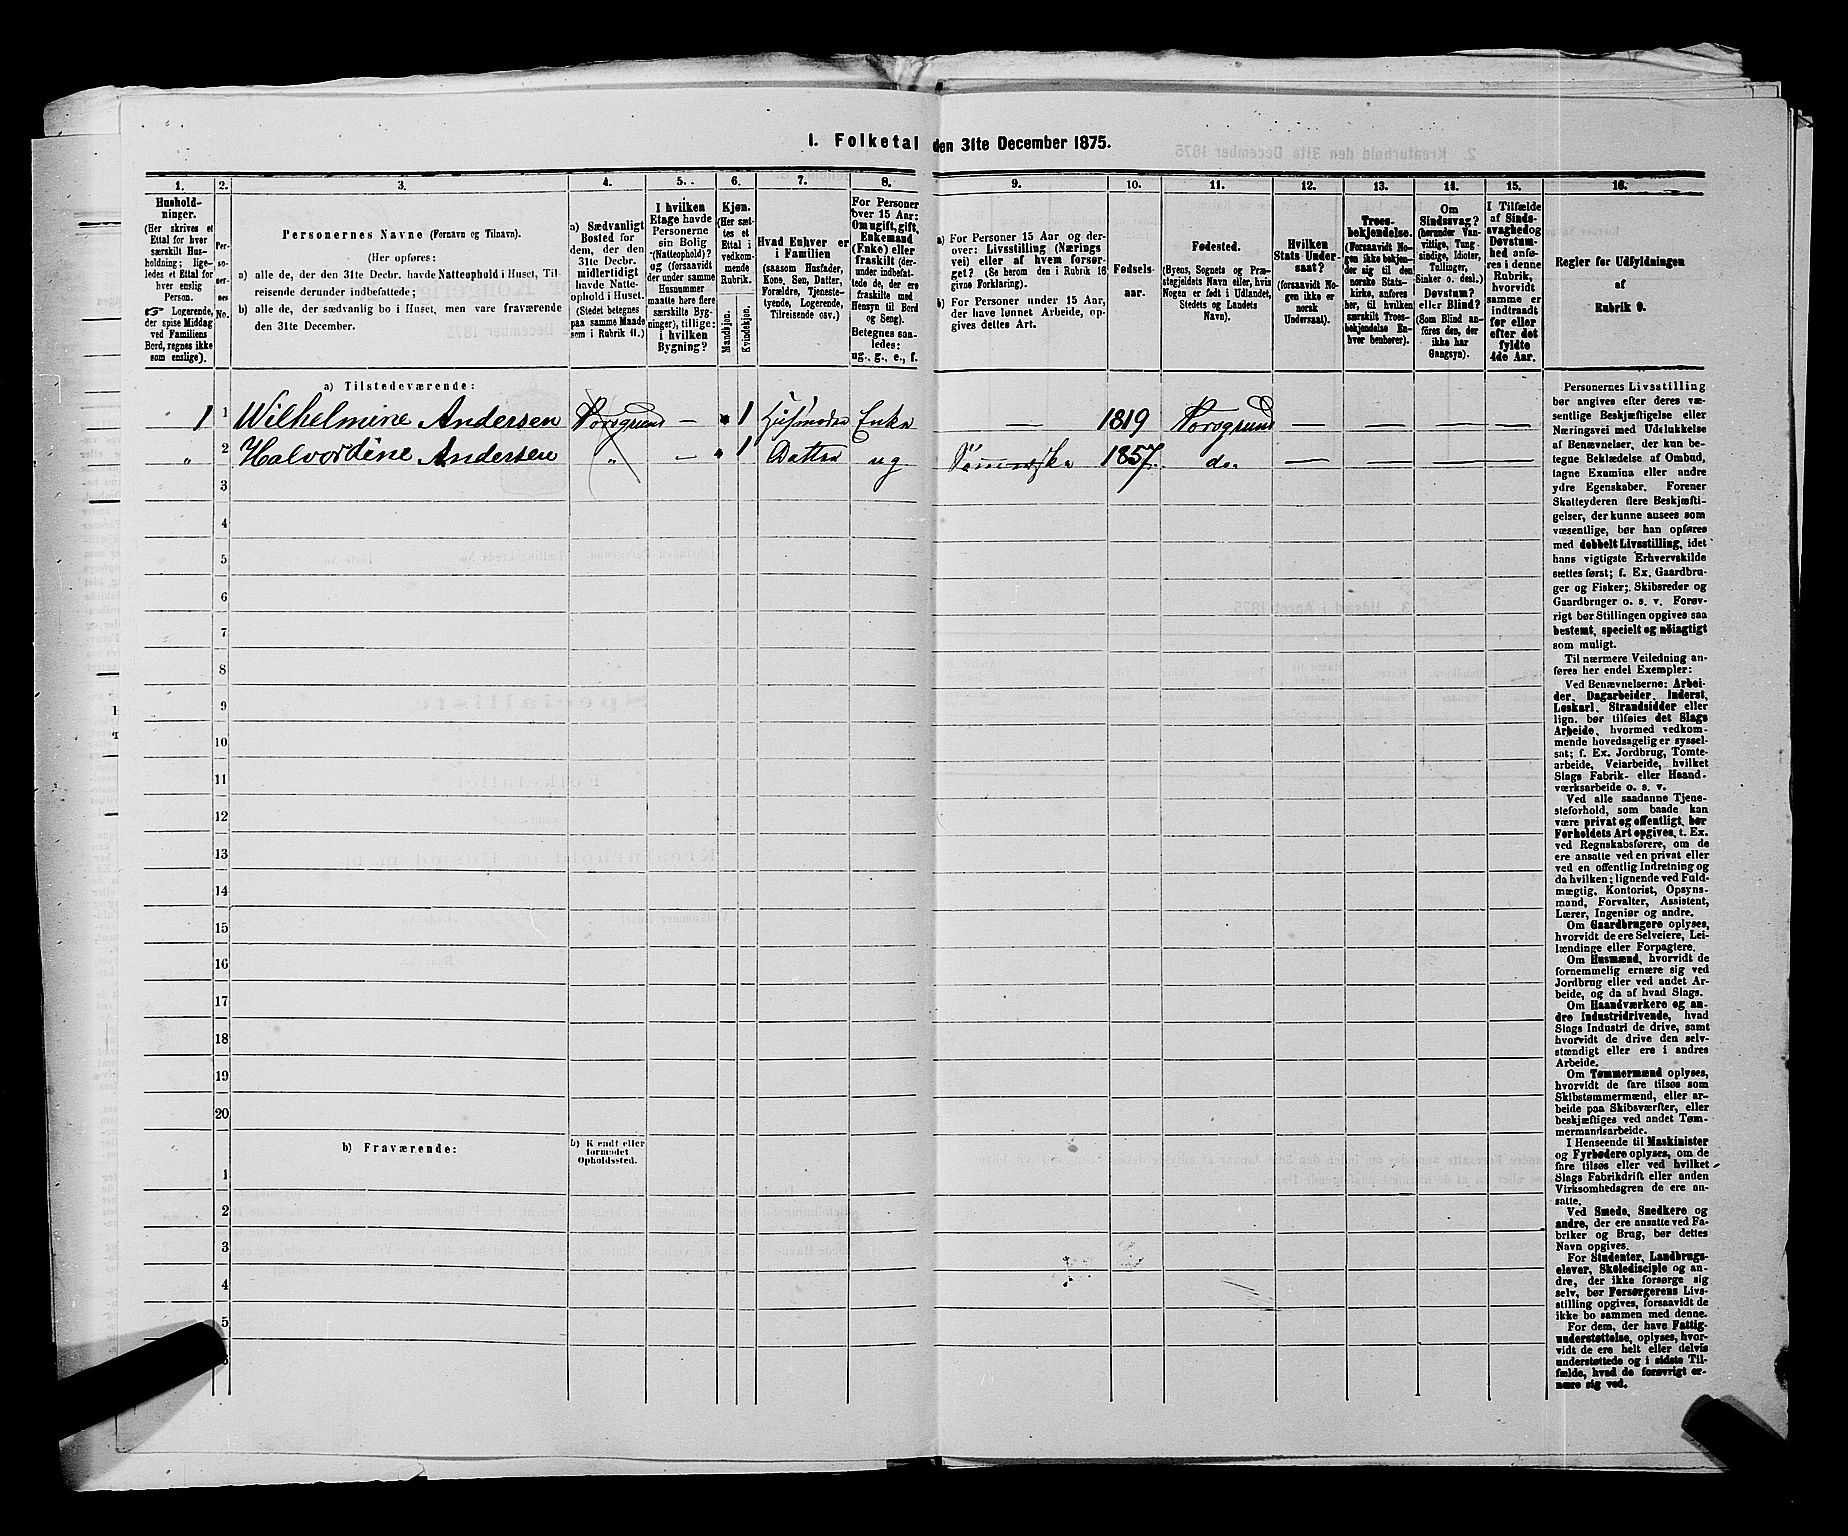 1. Folketal den 31te December 1875.
1. 2. 3. 4. 5. 6. 7. 8. 9. 10. 11. 12. 13. 14. 15. 16.
Hushold-
ninger.
(Her skrives et
Ettal for hver
særskilt Hus-
holdning; lige-
ledes et Ettal for
hver enslig
Person.
☞ Logerende,
der spise Middag
ved Familiens
Berd, regnes ikke
som enslige).
Per-
so-
ner-
nes
No.
Personernes Navne (Fornavn og Tilnavn).
(Her opføres:
a) alle de, der den 31te Decbr. havde Natteophold i Huset, Til-
reisende derunder indbefattede;
b) alle de, der sædvanlig bo i Huset, men vare fraværende
den 31te December.
a) Sædvanligt
Bosted for
dem, der den
31te Decbr.
midlertidigt
havde Natte-
ophold i Huset.
(Stedet betegnes
paa samme Maade
som i Rubrik 11.)
I hvilken
Etage havde
Personerne
sin Bolig
(Natteophold)?
og (forsaavidt
der under samme
Husnummer
maatte høre flere
særskilte Byg-
ninger), tillige:
i hvilken
Bygning?
Kjøn.
(Her sæt-
tes et
Ettal i
vedkom-
mende
Rubrik.
Mandkjøn.
Kvindekjøn.
Hvad Enhver er
i Familien
(saasom Husfader,
Kone, Søn, Datter,
Forældre, Tjeneste-
tyende, Logerende,
Tilreisende osv.)
For Personer
over 15 Aar:
Om ugift, gift,
Enkemand
(Enke) eller
fraskilt (der-
under indbefat-
tede de, der ere
fraskilte med
Hensyn til Bord
og Seng).
Betegnes saa-
ledes:
ug., g., e., f.
a) For Personer 15 Aar og der-
over: Livsstilling (Nærings
vei) eller af hvem forsør-
get? (Se herom den i Rubrik 16
givne Forklaring).
b) For Personer under 15 Aar,
der have lønnet Arbeide, op-
gives dettes Art.
Fødsels-
aar.
Fødested.
(Byens, Sognets og Præ-
stegjeldets Navn eller, hvis
Nogen er født i Udlandet,
Stedets og Landets
Navn).
Hvilken
Stats Under-
saat?
(forsaavidt No-
gen ikke er
norsk
Undersaat).
Troes-
bekjendelse.
(Forsaavidt No-
gen ikke bekjen-
der sig til den
norske Stats-
kirke, anføres
her, til hvilken
særskilt Troes-
bekjendelse En-
hver henhører).
Om
Sindssvag?
(herunder Van-
vittige, Tung-
sindige, Idioter,
Tullinger,
Sinker o. desl.)
Døvstum?
eller Blind?
(Som Blind an-
føres den, der
ikke har
Gangsyn).
I Tilfælde
af Sinds-
svaghed og
Døvstum-
hed anfø-
res i denne
Rubrik,
hvorvidt
samme er
indtraadt
før eller
efter det
fyldte
4de Aar.
Regler for Udfyldningen
af
Rubrik 9.
a) Tilstedeværende:
1 1 Wilhelmine Andersen Porsgrund — 1 Husmoder Enke — 1819 Porsgrund — — — —
„ 2 Halvordine Andersen „ — 1 Datter ug 1857. do. — — — —
3
4
5
6
7
8
9
10
11
12
13
14
15
16
17
18
19
20
b) Fraværende:
b) Kjendt eller
formodet
Opholdssted.
1
2
3
4
5
Personernes Livsstilling
bør angives efter deres væ-
sentlige Beskjæftigelse eller
Næringsvei med Udelukkelse
af Benævnelser, der kun be-
tegne Beklædelse af Ombud,
tagne Examina eller andre
ydre Egenskaber. Forener
Skatteyderen flere Beskjæfti-
gelser, der kunne ansees som
væsentlige, bør han opføres
med dobbelt Livsstilling, idet
hans vigtigste Erhvervskilde
sættes først; f. Ex. Gaardbru-
ger og Fisker; Skibsreder og
Gaardbruger o. s. v. Forøv-
rigt bør Stillingen opgives saa
bestemt, specielt og nöiagtigt
som muligt.
Til nærmere Veiledning an-
føres her endel Exempler:
Ved Benævnelserne: Arbei-
der, Dagarbeider, Inderst,
Løskarl, Strandsidder eller
lign. bør tilføies det Slags
Arbeide, hvormed vedkom-
mende hovedsagelig er syssel-
sat; f. Ex. Jordbrug, Tomte-
arbeide, Veiarbeide, hvilket
Slags Fabrik- eller Haand-
værksarbeide o. s. v.
Ved alle saadanne Tjene-
steforhold, som baade kan
være privat og offentligt, bør
Forholdets Art opgives, t. Ex.
ved Regnskabsførere, om de
ere ansatte ved en privat eller
ved en offentlig Indretning og
da hvilken; lignende ved Fuld-
mægtig, Kontorist, Opsyns-
mand, Forvalter, Assistent,
Lærer, Ingeniør og andre.
Om Gaardbrugere oplyses,
hvorvidt de ere Selveiere, Lei-
lændinge eller Forpagtere.
Om Husmænd, hvorvidt de
fornemmelig ernære sig ved
Jordbrug eller ved andet Ar-
beide, og da af hvad Slags.
Om Haandværkere og an-
dre Industridrivende, hvad
Slags Industri de drive, samt
hvorvidt de drive den selv-
stændigt eller ere i andres
Arbeide.
Om Tømmermænd oplyses,
hvorvidt de fare tilsøs som
Skibstømmermænd, eller ar-
beide paa Skibsværfter, eller
beskjæftiges ved andet Tøm-
mermandsarbeide.
I Henseende til Maskinister
og Fyrbødere oplyses, om de
fare tilsøs eller ved hvilket
Slags Fabrikdrift eller anden
Virksomhedsgren de ere an-
satte.
Ved Smede, Snedkere og
andre, der ere ansatte ved Fa-
briker og Brug, bør dettes
Navn opgives.
For Studenter, Landbrugs-
elever, Skoledisciple og an-
dre, der ikke forsørge sig
selv, bør Forsørgerens Livs-
stilling opgives, forsaavidt de
ikke bo sammen med denne.
For dem, der have Fattig-
understøttelse, oplyses, hvor-
vidt de ere helt eller delvis
understøttede og i sidste Til-
fælde, hvad de forøvrigt er-
nære sig ved.